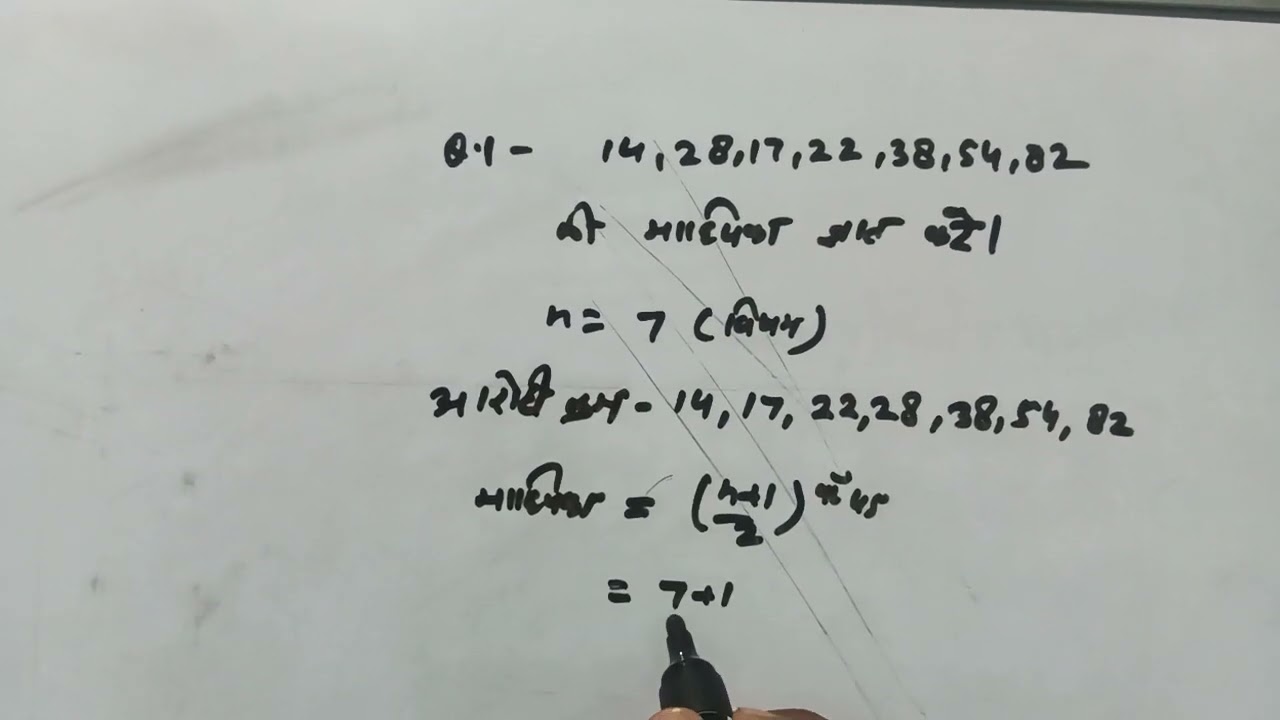 Q.1 - 14, 28, 17, 22, 38, 54, 82
की माध्यिका ज्ञात करें।
n = 7 (विषम)
आरोही क्रम - 14, 17, 22, 28, 38, 54, 82
माध्यिका = (n+1/2) वाँ पद
= 7+1